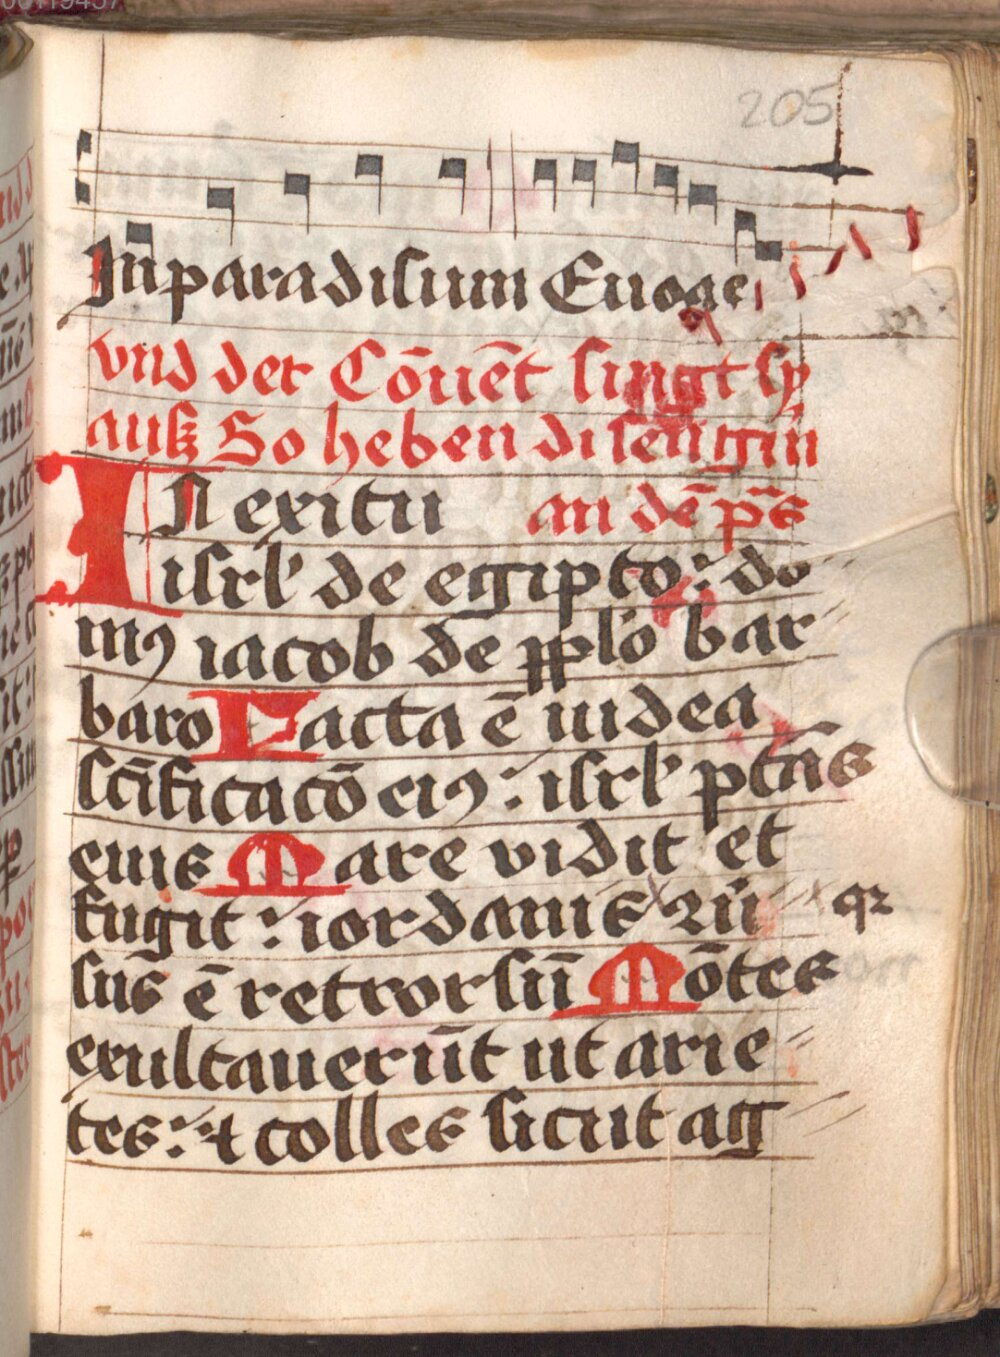 205
In paradisum Euoae
vnd der Cōuēt singt sy
auß So heben di sengrin
IN exitu an dē ps̄
isrl' de egipto : do
mꝰ iacob de pplō bar
baro Facta ē iudea
scīficacō eiꝰ : isrl' ptās
euis Mare vidit et
fugit : iordanis 2ūˣ qꝛ
sus̄ ē retrorsū Mōtes
exultauerūt ut arie
tes : ⁊ colles sicut ag